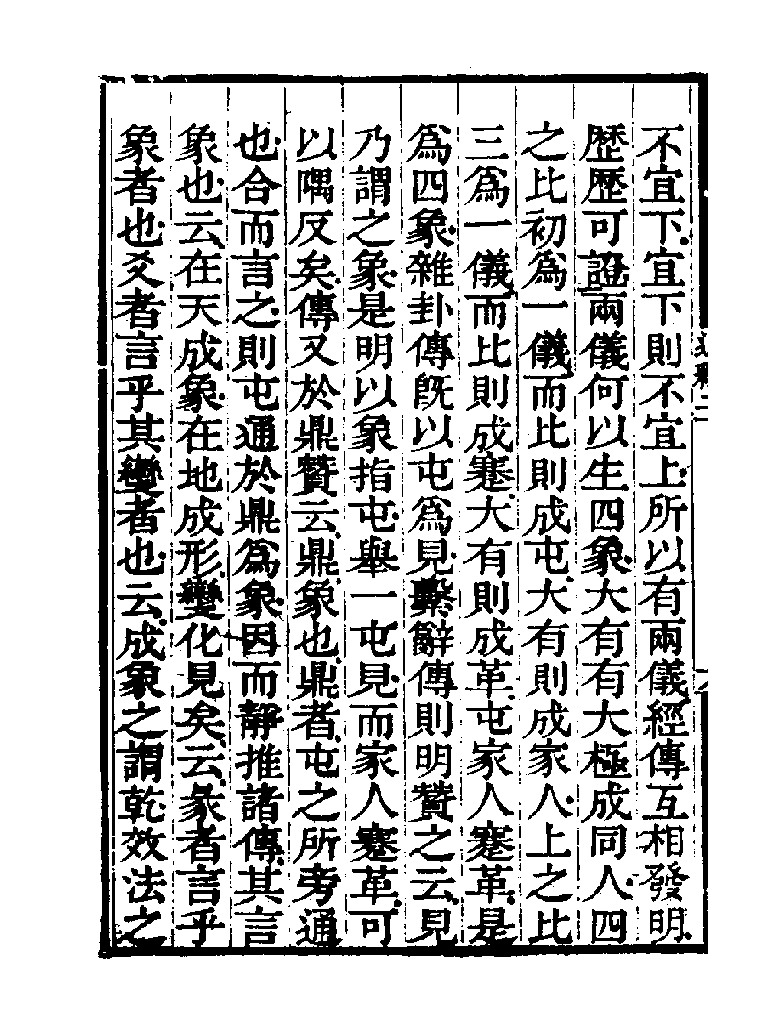 不宜下宜下則不宜上所以有兩儀經傳互相發明
歷歷可證兩儀何以生四象大有有大極成同人四
之比初為一儀而比則成屯大有則成家人上之比
三為一儀而比則成蹇大有則成革屯家人蹇革是
為四象雜卦傳旣以屯為見繫辭傳則明贊之云見
乃謂之象是明以象指屯舉一屯見而家人蹇革可
以隅反矣傳又於鼎贊云鼎象也鼎者屯之所旁通
也合而言之則屯通於鼎為象因而靜推諸傳其言
象也云在天成象在地成形變化見矣云彖者言乎
象者也爻者言乎其變者也云成象之謂乾效法之